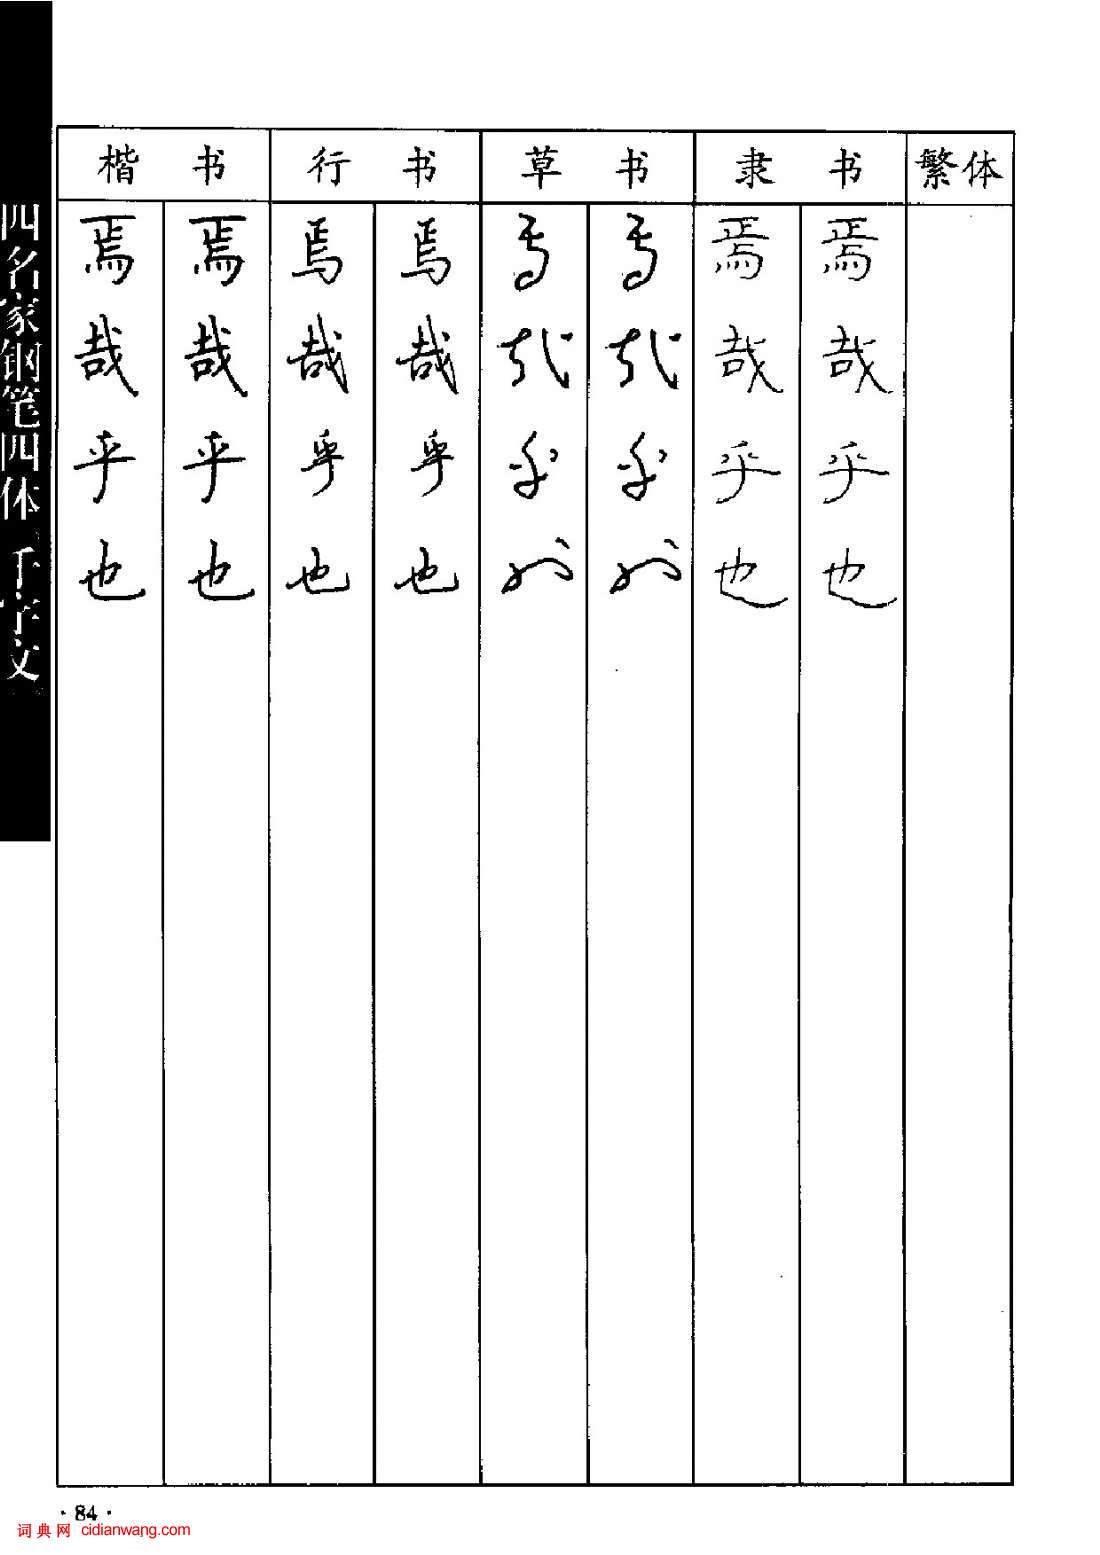 四名家钢笔四体 千字文
楷书 行书 草书 隶书 繁体
焉 焉 焉 焉 焉 焉 焉 焉
哉 哉 哉 哉 哉 哉 哉 哉
乎 乎 乎 乎 乎 乎 乎 乎
也 也 也 也 也 也 也 也
·84·
词典网 cidianwang.com